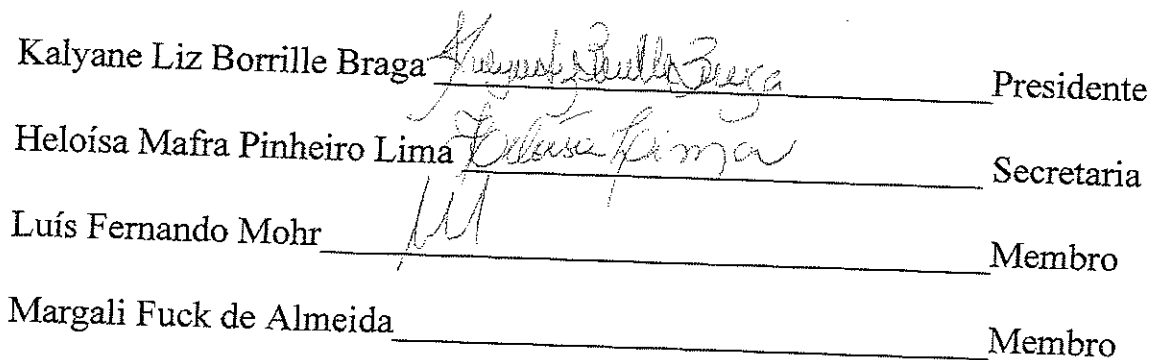 Kalyane Liz Borrille Braga Presidente
Heloísa Mafra Pinheiro Lima Heloísa Lima Secretaria
Luís Fernando Mohr Membro
Margali Fuck de Almeida Membro